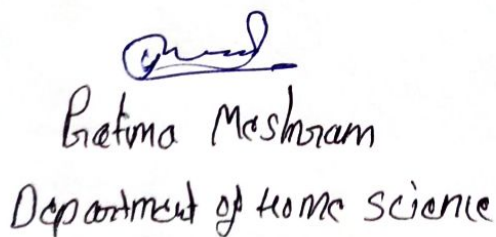 Pratima Meshram
Department of Home Science